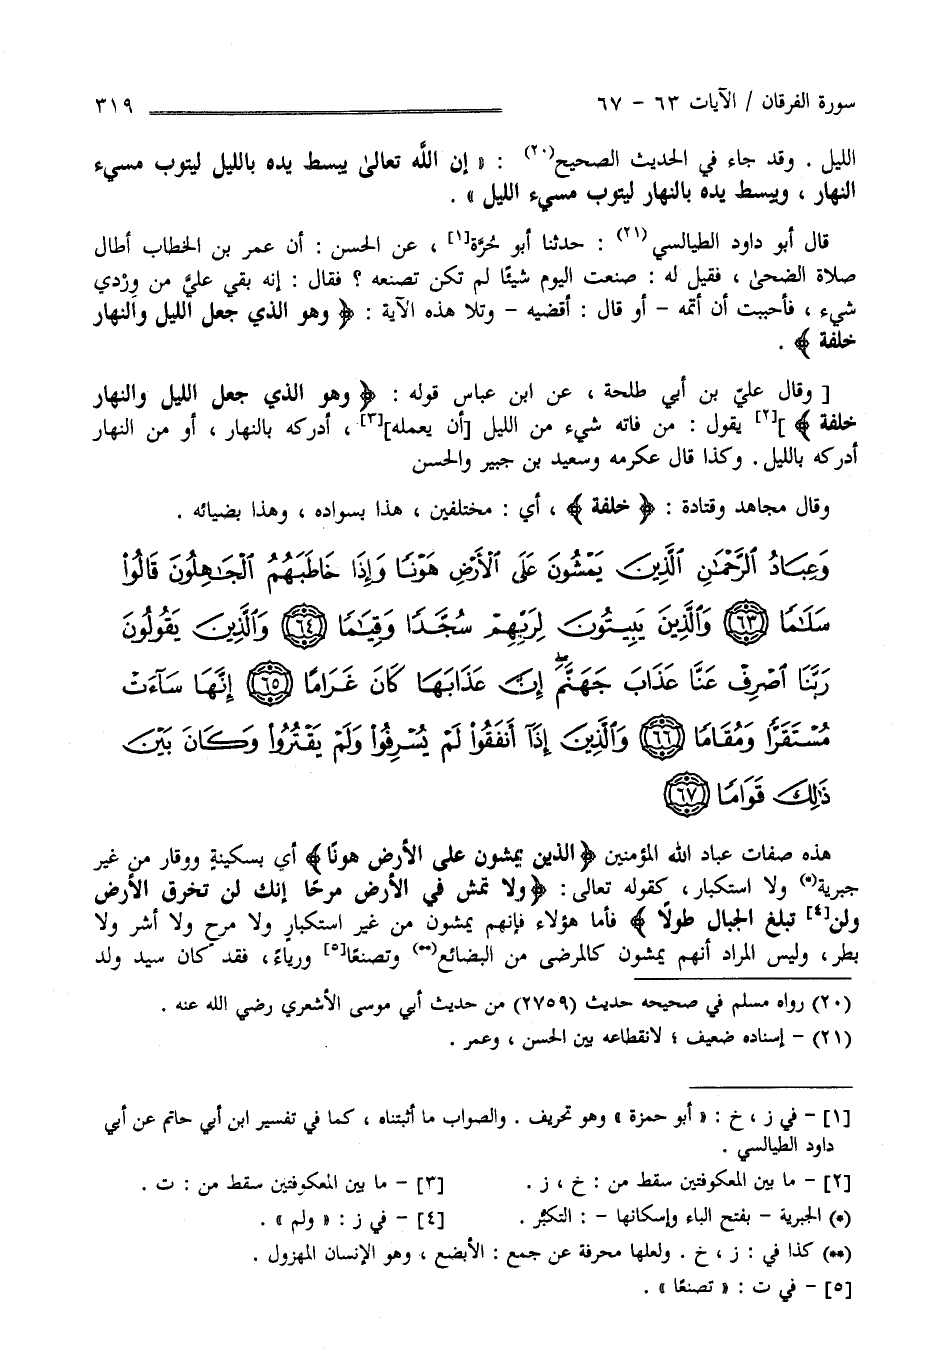 سورة الفرقان / الآيات ٦٣ – ٦٧ ٣١٩
الليل . وقد جاء في الحديث الصحيح(٢٠) : « إن اللَّه تعالىٰ يبسط يده بالليل ليتوب مسيء
النهار ، ويبسط يده بالنهار ليتوب مسيء الليل » .
قال أبو داود الطيالسي(٢١) : حدثنا أبو حُرَّة[١] ، عن الحسن : أن عمر بن الخطاب أطال
صلاة الضحىٰ ، فقيل له : صنعت اليوم شيئًا لم تكن تصنعه ؟ فقال : إنه بقي عليَّ من وِرْدي
شيء ، فأحببت أن أتمه – أو قال : أقضيه – وتلا هذه الآية : ﴿ وهو الذي جعل الليل والنهار
خلفة ﴾ .
[ وقال عليّ بن أبي طلحة ، عن ابن عباس قوله : ﴿ وهو الذي جعل الليل والنهار
خلفة ﴾ ][٢] يقول : من فاته شيء من الليل [أن يعمله][٣] ، أدركه بالنهار ، أو من النهار
أدركه بالليل. وكذا قال عكرمه وسعيد بن جبير والحسن
وقال مجاهد وقتادة : ﴿ خلفة ﴾ ، أي : مختلفين ، هذا بسواده ، وهذا بضيائه .
وَعِبَادُ ٱلرَّحْمَٰنِ ٱلَّذِينَ يَمْشُونَ عَلَى ٱلْأَرْضِ هَوْنًا وَإِذَا خَاطَبَهُمُ ٱلْجَٰهِلُونَ قَالُوا۟
سَلَٰمًا ٦٣ وَٱلَّذِينَ يَبِيتُونَ لِرَبِّهِمْ سُجَّدًا وَقِيَٰمًا ٦٤ وَٱلَّذِينَ يَقُولُونَ
رَبَّنَا ٱصْرِفْ عَنَّا عَذَابَ جَهَنَّمَ ۖ إِنَّ عَذَابَهَا كَانَ غَرَامًا ٦٥ إِنَّهَا سَآءَتْ
مُسْتَقَرًّا وَمُقَامًا ٦٦ وَٱلَّذِينَ إِذَآ أَنفَقُوا۟ لَمْ يُسْرِفُوا۟ وَلَمْ يَقْتُرُوا۟ وَكَانَ بَيْنَ
ذَٰلِكَ قَوَامًا ٦٧
هذه صفات عباد الله المؤمنين ﴿الذين يمشون على الأرض هونًا﴾ أي بسكينةٍ ووقار من غير
جبرية(*) ولا استكبار، كقوله تعالى: ﴿ولا تمش في الأرض مرحًا إنك لن تخرق الأرض
ولن[٤] تبلغ الجبال طولًا ﴾ فأما هؤلاء فإنهم يمشون من غير استكبارٍ ولا مرحٍ ولا أشر ولا
بطر، وليس المراد أنهم يمشون كالمرضى من البضائع(**) وتصنعًا[٥] ورياءً، فقد كان سيد ولد
(٢٠) رواه مسلم في صحيحه حديث (٢٧٥٩) من حديث أبي موسى الأشعري رضي الله عنه .
(٢١) – إسناده ضعيف ؛ لانقطاعه بين الحسن ، وعمر .
[١] – في ز ، خ : « أبو حمزة » وهو تحريف . والصواب ما أثبتناه ، كما في تفسير ابن أبي حاتم عن أبي
داود الطيالسي .
[٢] – ما بين المعكوفتين سقط من : خ ، ز . [٣] – ما بين المعكوفتين سقط من : ت .
(*) الجبرية – بفتح الباء وإسكانها – : التكبُّر . [٤] – في ز : « ولم » .
(**) كذا في : ز ، خ . ولعلها محرفة عن جمع : الأبضع ، وهو الإنسان المهزول .
[٥] – في ت : « تصنعًا » .